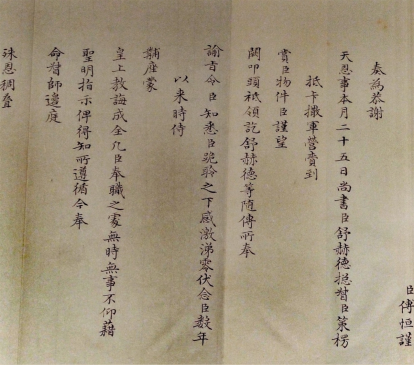 臣傅恒謹
奏為恭謝
天恩事本月二十五日尚書臣舒赫德揔督臣策楞
抵卡撒軍營賫到
賞臣物件臣謹望
闕叩頭祗領訖舒赫德等隨傳所奉
諭旨令臣知悉臣跪聆之下感激涕零伏念臣數年
以来時侍
黼座蒙
皇上教誨成全凡臣奉職之處無時無事不仰藉
聖明指示俾得知所遵循今奉
命督師邊庭
殊恩稠叠